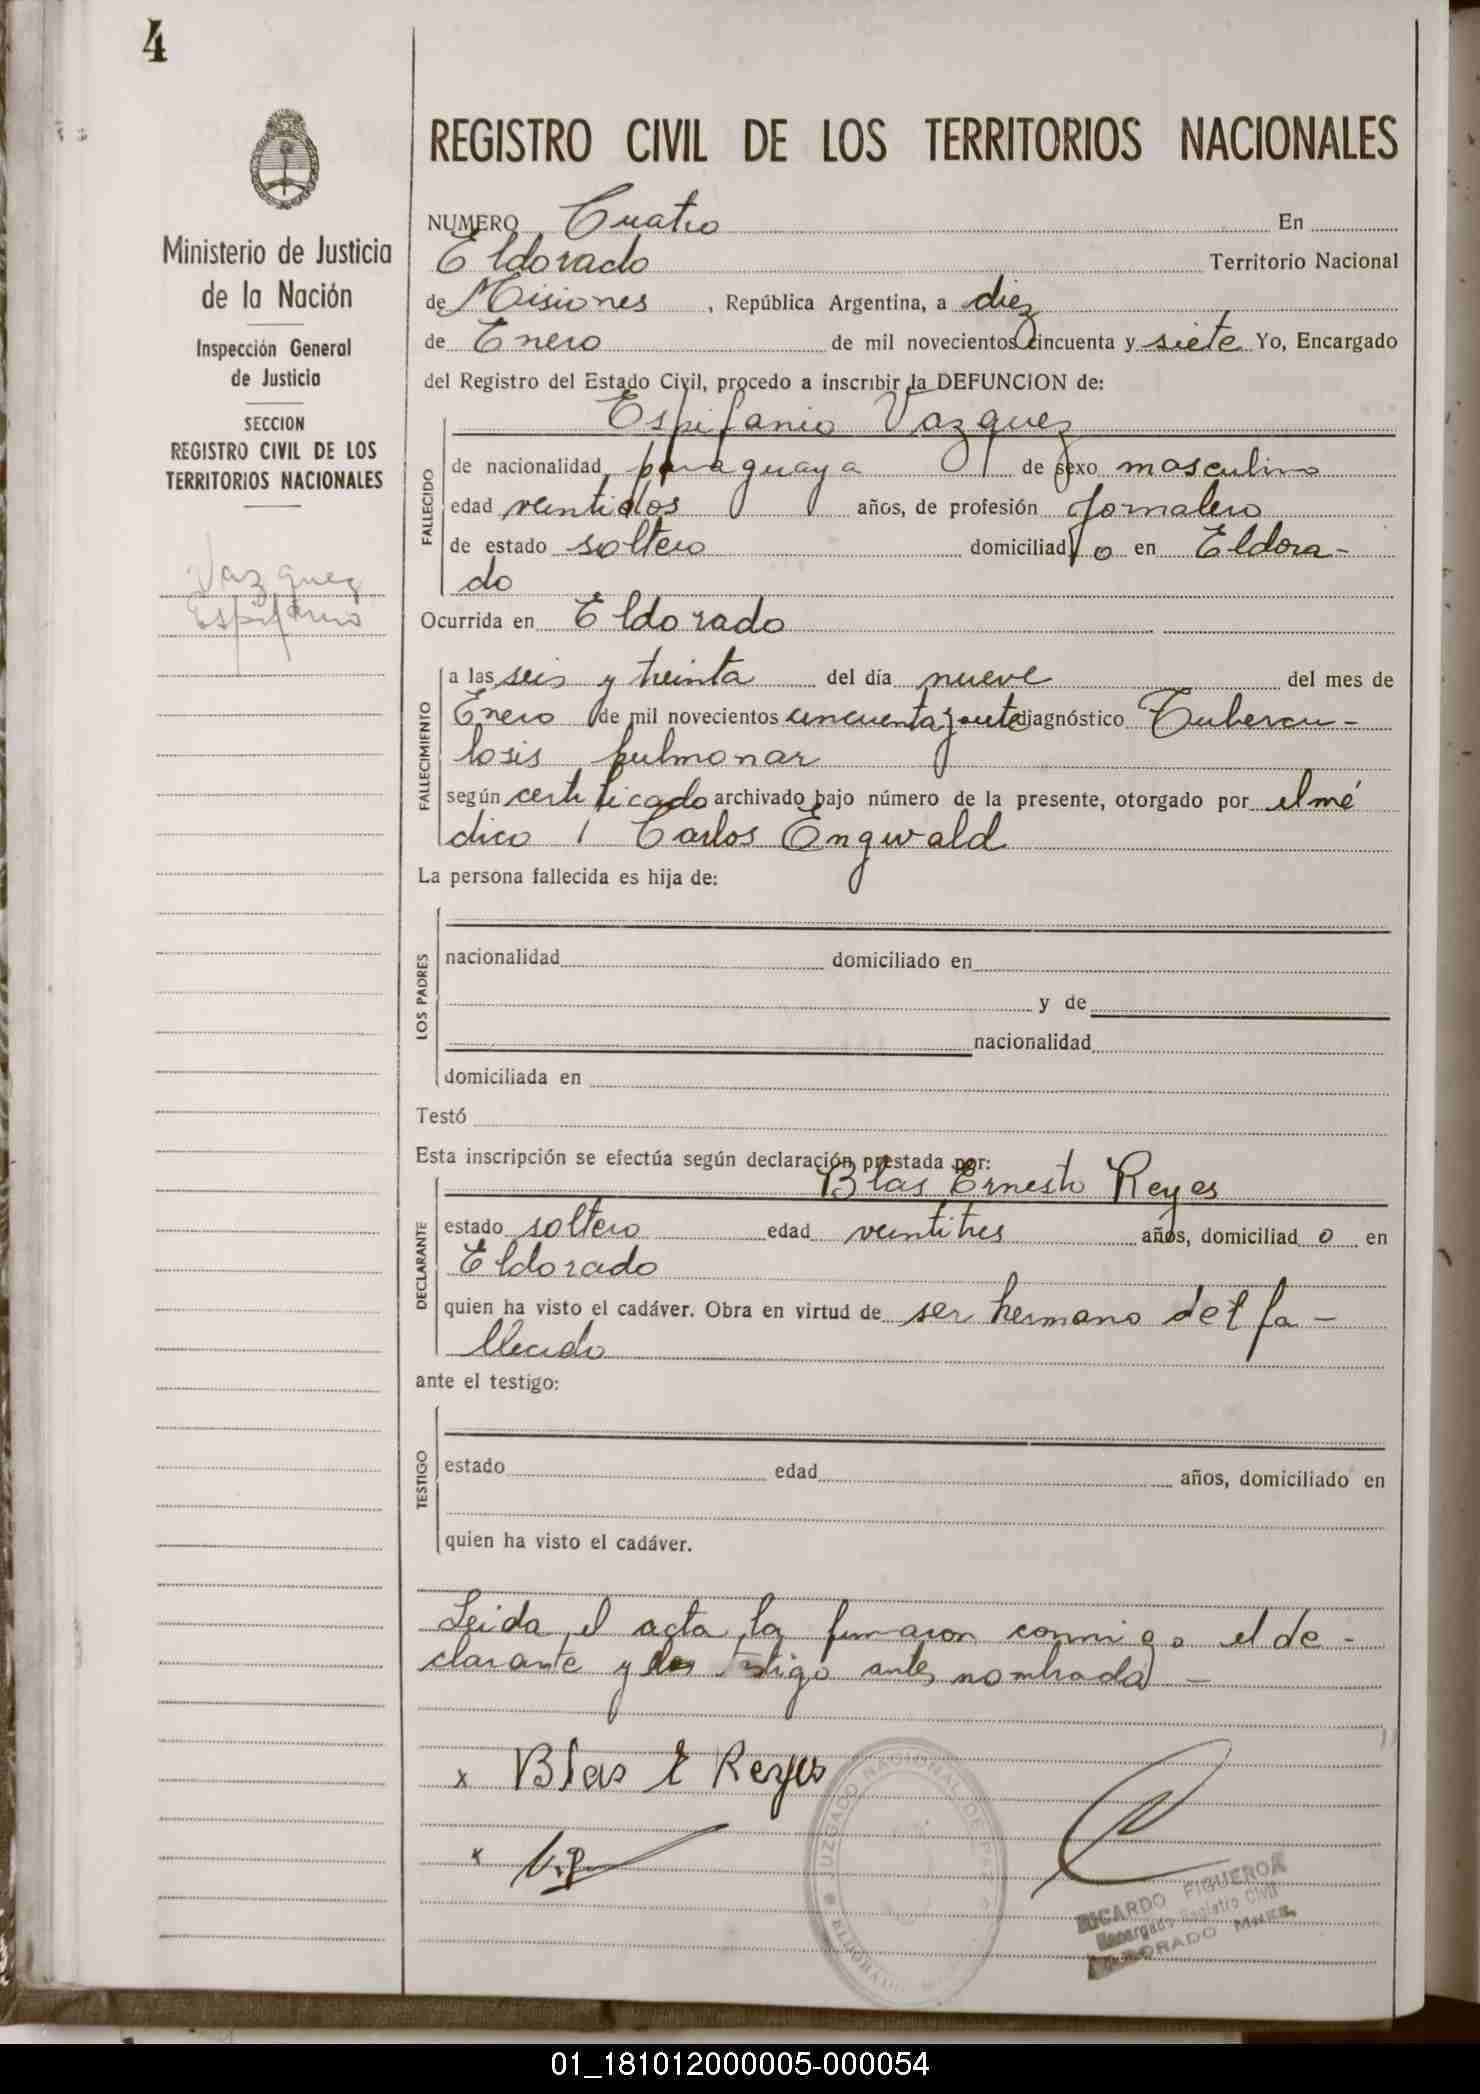 4
REGISTRO CIVIL DE LOS TERRITORIOS NACIONALES
Ministerio de Justicia
de la Nación
Inspección General
de Justicia
SECCION
REGISTRO CIVIL DE LOS
TERRITORIOS NACIONALES
Vazquez
Espifanio
NUMERO Cuatro En
Eldorado Territorio Nacional
de Misiones, República Argentina, a diez
de Enero de mil novecientos cincuenta y siete Yo, Encargado
del Registro del Estado Civil, procedo a inscribir la DEFUNCION de:
Espifanio Vazquez
FALLECIDO
de nacionalidad paraguaya de sexo masculino
edad veintidos años, de profesión Jornalero
de estado soltero domiciliad o en Eldora-
do
Ocurrida en Eldorado
FALLECIMIENTO
a las seis y treinta del día nueve del mes de
Enero de mil novecientos cincuenta y siete diagnóstico Tubercu-
losis pulmonar
según certificado archivado bajo número de la presente, otorgado por el mé
dico Carlos Engwald
La persona fallecida es hija de:
LOS PADRES
nacionalidad domiciliado en
y de
nacionalidad
domiciliada en
Testó
Esta inscripción se efectúa según declaración prestada por:
Blas Ernesto Reyes
DECLARANTE
estado soltero edad veintitres años, domiciliad o en
Eldorado
quien ha visto el cadáver. Obra en virtud de ser hermano del fa-
llecido
ante el testigo:
TESTIGO
estado edad años, domiciliado en
quien ha visto el cadáver.
Leida el acta la firmaron conmigo el de-
clarante y testigo antes nombrado -
x Blas E Reyes
x
JUZGADO NACIONAL DE PAZ
ELDORADO
RICARDO FIGUEROA
Encargado Registro Civil
ELDORADO Mnes.
01_181012000005-000054